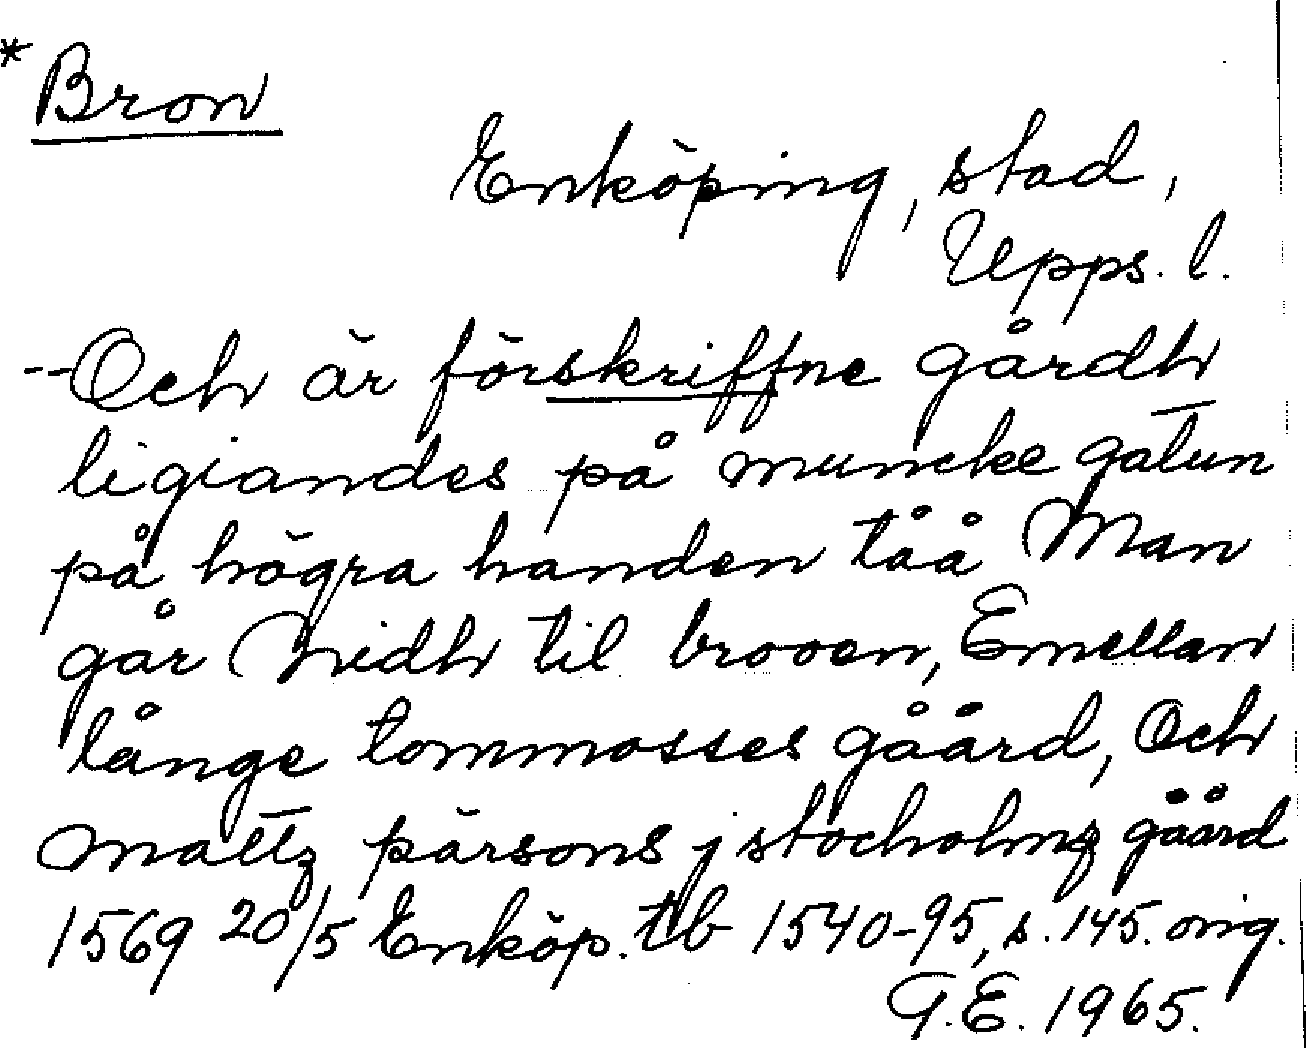 *Bron
Enköping, stad,
Upps. l.
--Och är förskriffne gårdh
ligiandes på muncke gatun
på högra handen tåå Man
går Nidh til brooen, Emellan
långe tommosses gåård, Och
mattz pärsons j stocholmz gåård
1569 20/5 Enköp. tb 1540-95, s. 145. orig.
G.E. 1965.